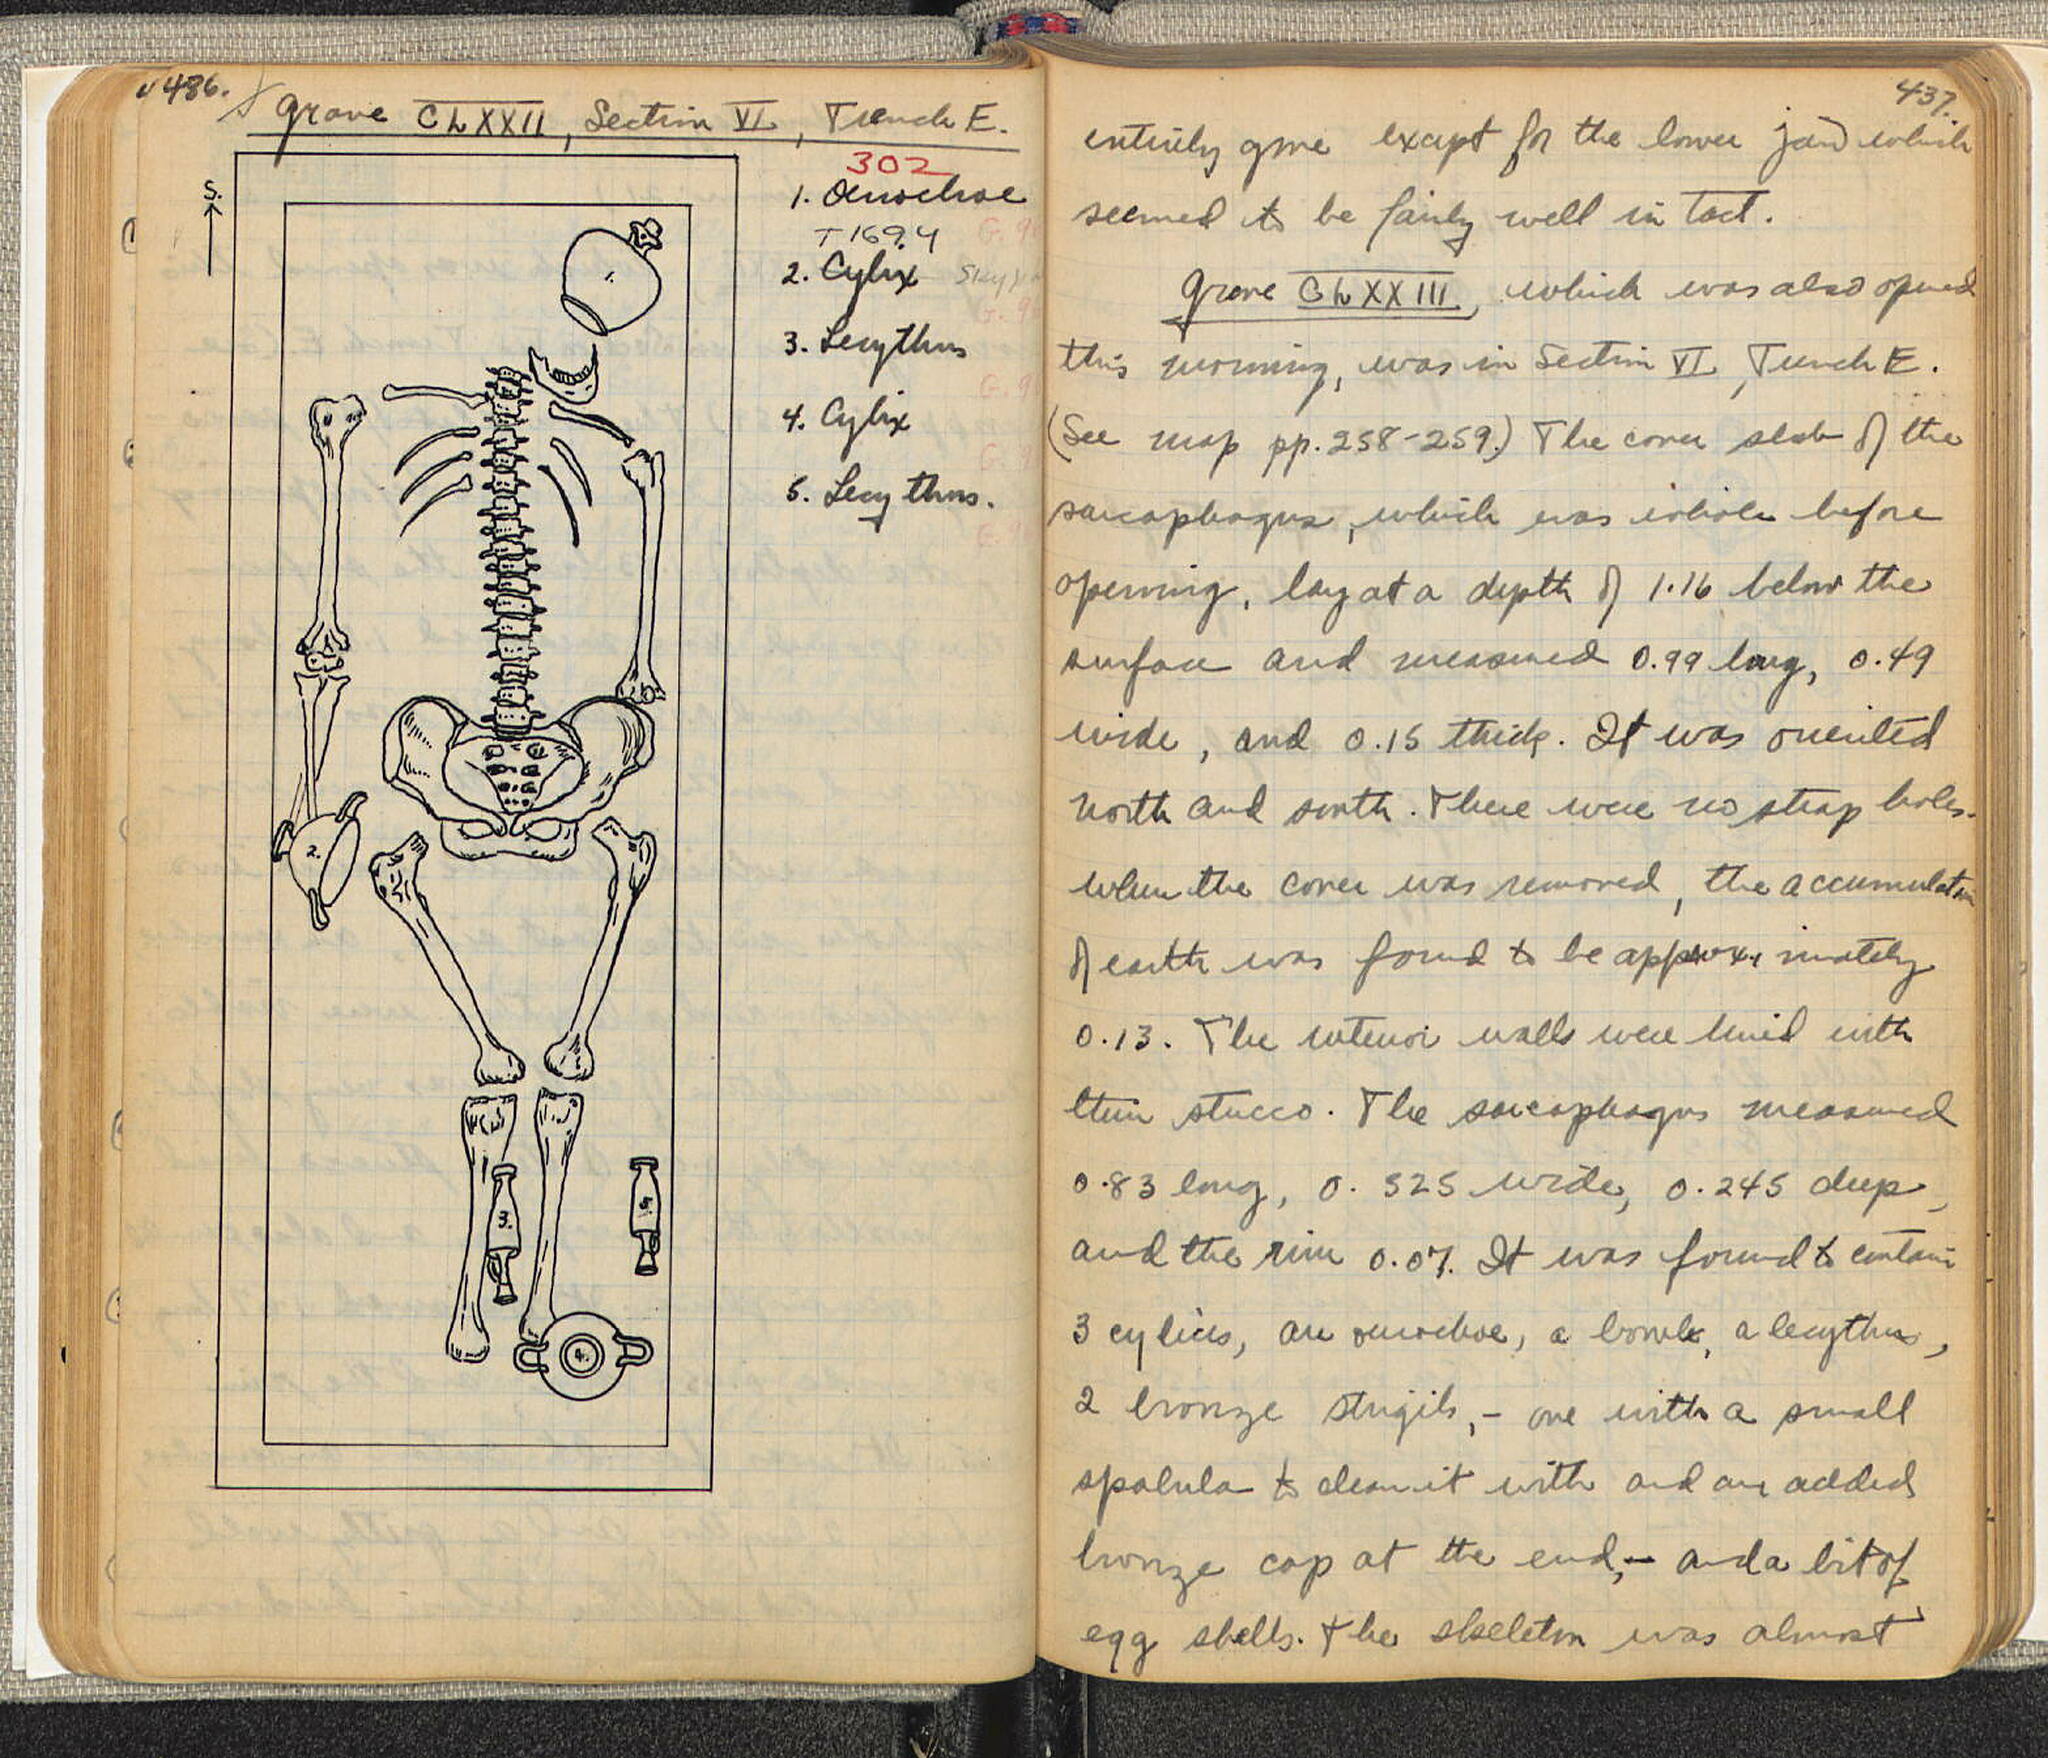 486.
Grave CLXXII, Section VI, Trench E.
302
S.
1. Oenochoe
T 1694
2. Cylix
3. Lecythus
4. Cylix
5. Lecythus.
2.
3.
5.
4.
437.
entirely gone except for the lower jaw which
seemed to be fairly well in tact.
Grave CLXXIII, which was also opened
this morning, was in Section VI, Trench E.
(See map pp. 258-259.) The cover slab of the
sarcophagus, which was whole before
opening, lay at a depth of 1.16 below the
surface and measured 0.99 long, 0.49
wide, and 0.15 thick. It was oriented
north and south. There were no strap holes.
When the cover was removed, the accumulation
of earth was found to be approximately
0.13. The interior walls were lined with
thin stucco. The sarcophagus measured
0.83 long, 0.325 wide, 0.245 deep,
and the rim 0.07. It was found to contain
3 cylices, an oenochoe, a bowl, a lecythus,
2 bronze strigils, - one with a small
spatula to clean it with and an added
bronze cap at the end, - and a bit of
egg shells. The skeleton was almost